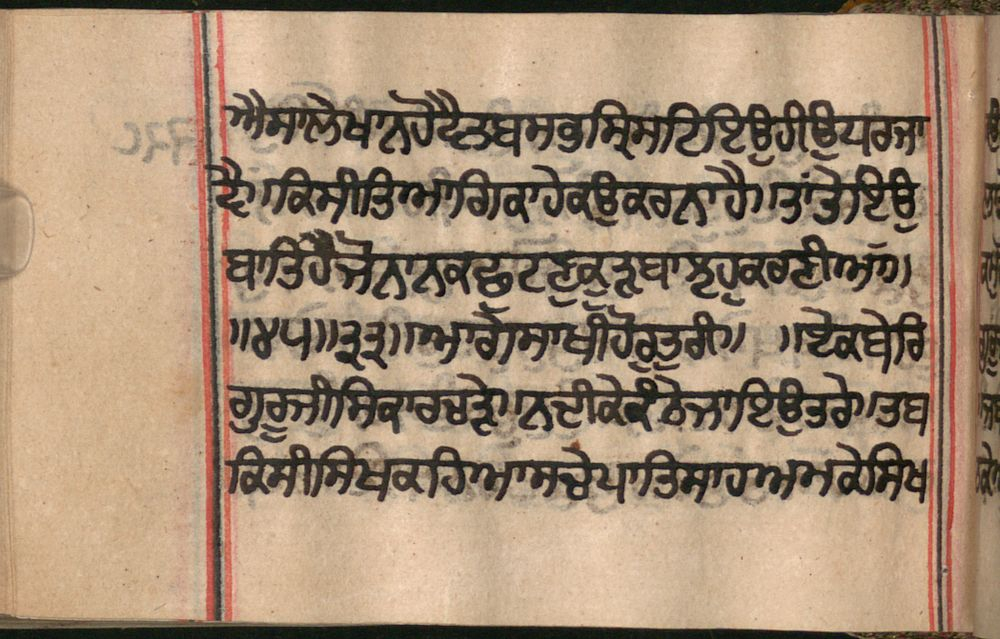 ਐਸਾਲੇਖਾਨਹੋਵੈਤਬਸਭਸ੍ਰਿਸਟਿਇਉਹੀਉਧਰਜਾ
ਵੈ॥ਕਿਸੀਤਿਆਗਿਕਾਹੇਕਉਕਰਨਾਹੈ॥ਤਾਂਤੇਇਉ
ਬਾਤਿਹੈਜੋਨਾਨਕਛੁਟਣੁਕੁੜਬਾੜਹੁਕਰਣੀਆਂ॥
॥੪੫॥੩੩॥ਆਗੇਸਾਖੀਹੋਰੁਤੁਰੀ॥ ॥ਏਕਬੇਰਿ
ਗੁਰੂਜੀਸਿਕਾਰਚੜੇ।ਨਦੀਕੇਕੰਠੇਜਾਇਉਤਰੇ।ਤਬ
ਕਿਸੀਸਿਖਕਹਿਆਸਚੇਪਾਤਿਸਾਹਅਸਕੇਸਿਖ